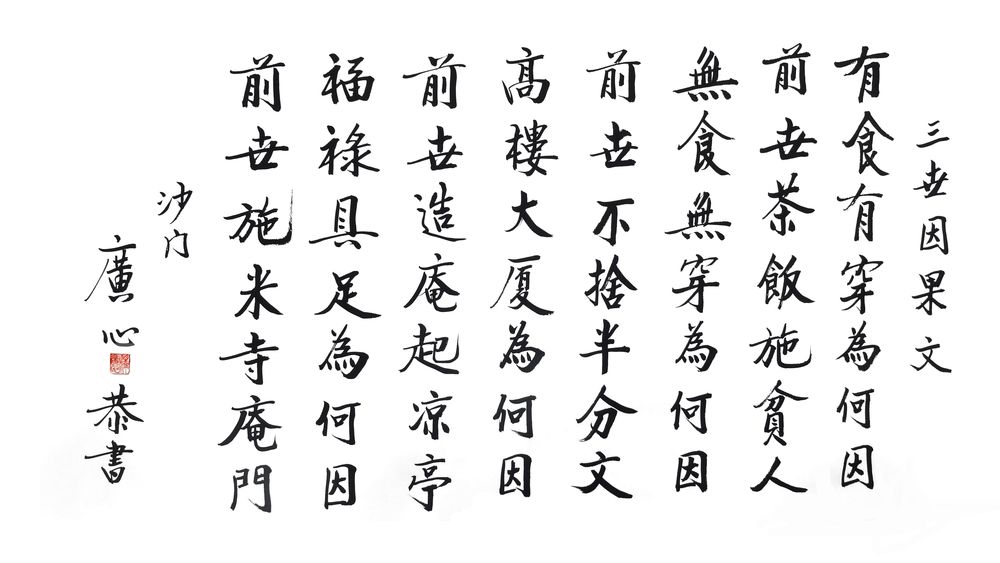 三世因果文
有食有穿為何因
前世茶飯施貧人
無食無穿為何因
前世不捨半分文
高樓大厦為何因
前世造庵起凉亭
福祿具足為何因
前世施米寺庵門
沙门
廣心
恭書